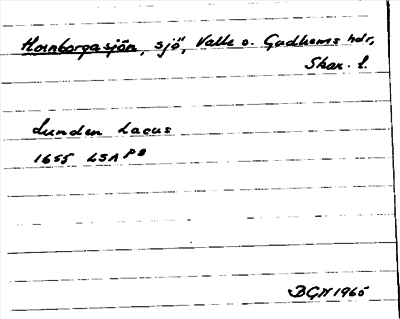 Hornborgasjön, sjö, Valle o. Gudhems hdr,
Skar. l.
Lunden Lacus
1655 LSA PB
BGN 1965